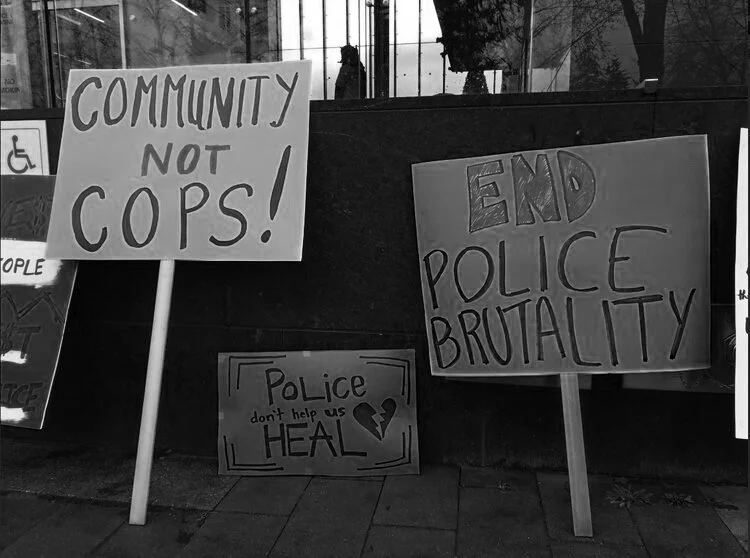 COMMUNITY
NOT
COPS!
END
POLICE
BRUTALITY
POLICE
don't help us
HEAL
OPLE